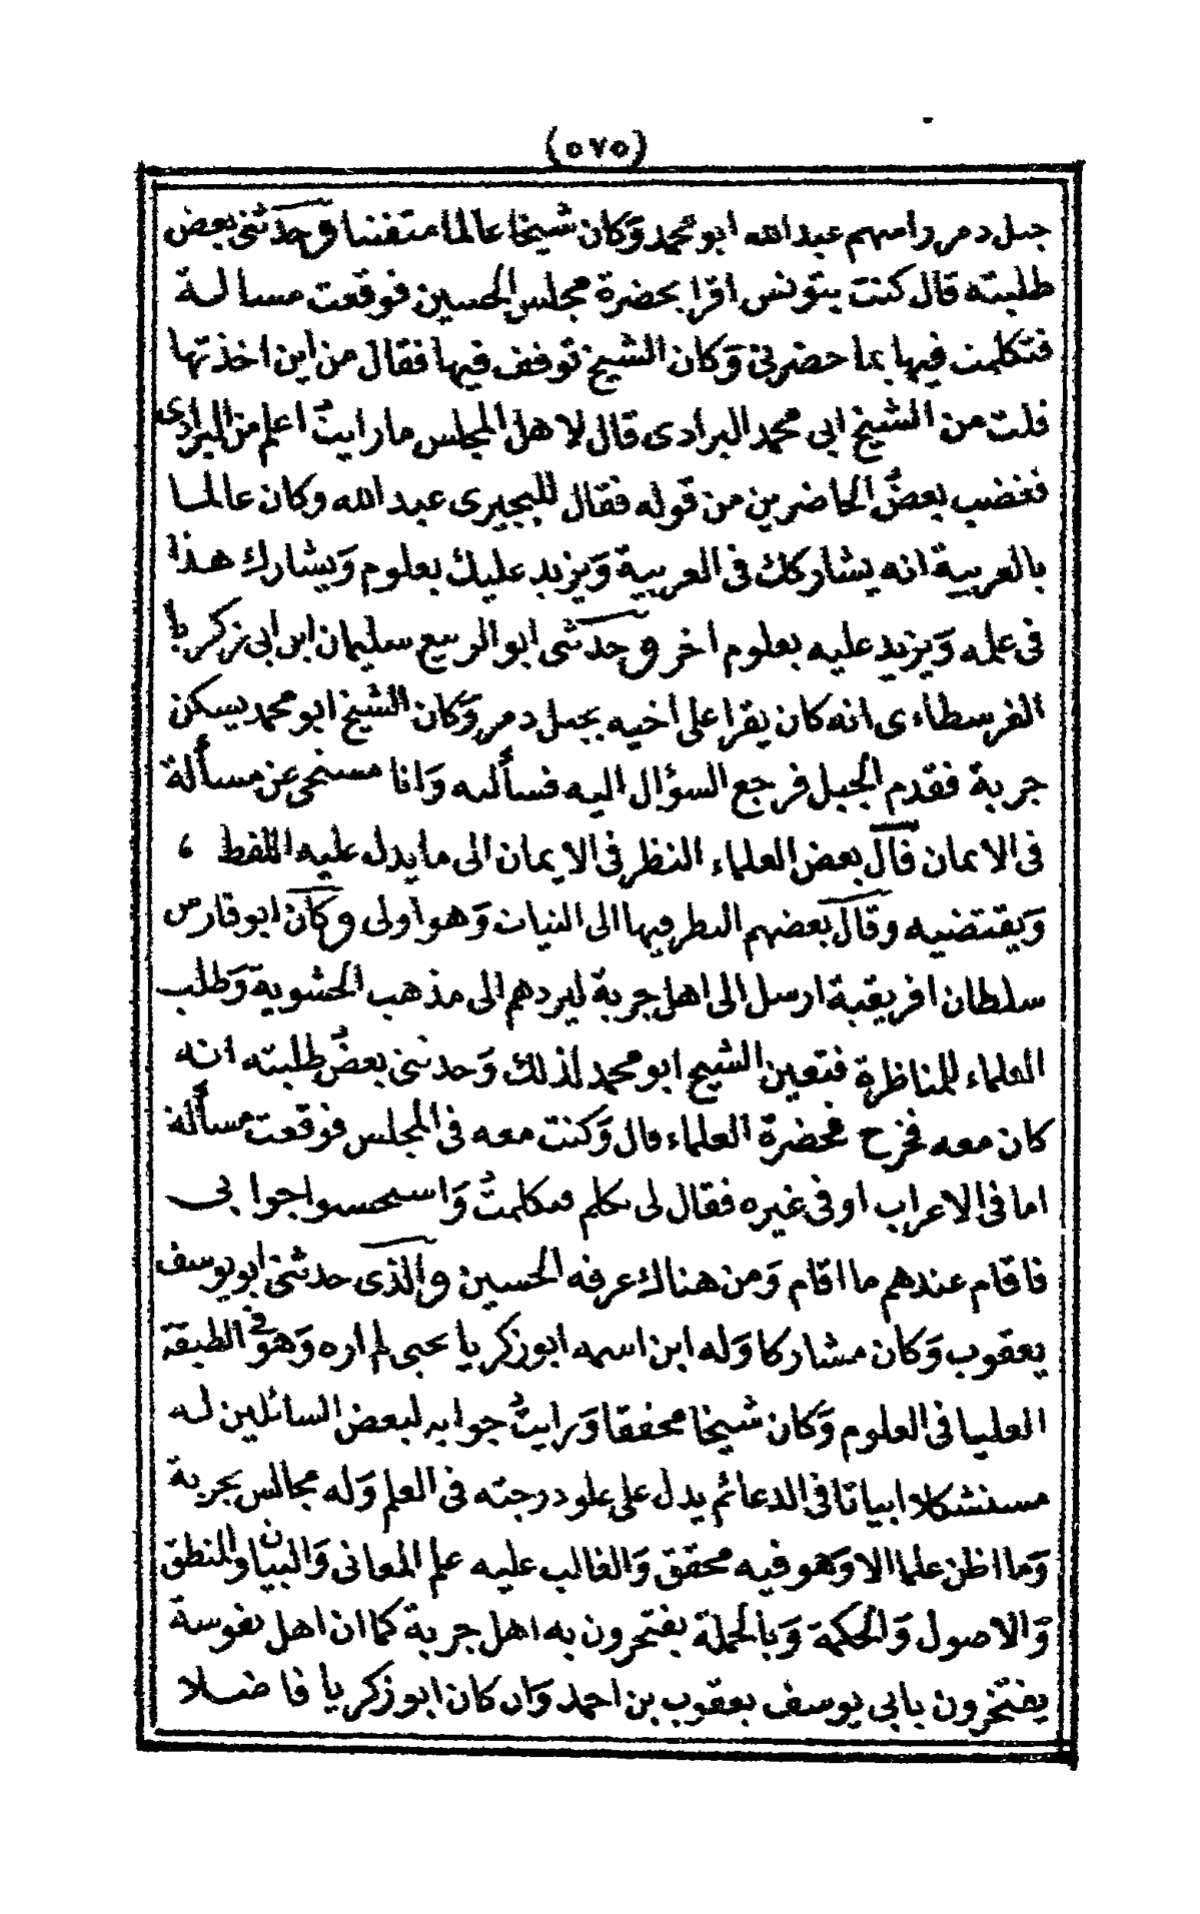 (٥٧٥)
جبل دمر واسهم عبد الله ابو محمد وَكان شيخا عالما متفننا وحدثنى بعض
طلبته قال كنت بتونس اقرا بحضرة مجلس الحسين فوقعت مسالة
فتكلمت فيها بما حضرنى وَكان الشيخ توقف فيها فقال من اين اخذتها
قلت من الشيخ ابى محمد البرادى قال لاهل المجلس ما رايت اعلم من البرادى
فغضب بعض الحاضرين من قوله فقال للبجيرى عبد الله وكان عالما
بالعربية انه يشاركك فى العربية وَيزيد عليك بعلوم وَيشارك هذا
فى علمه وَيزيد عليه بعلوم اخر وحدثنى ابو الربيع سليمان ابن ابى زكريا
الفرسطاءى انه كان يقرا على اخيه بجبل دمر وَكان الشيخ ابو محمد يسكن
جربة فقدم الجبل فرجع السؤال اليه فسألته وَانا مستحى عن مسألة
فى الايمان قال بعض العلماء النظر فى الايمان الى ما يدل عليه اللفظ ،
وَيقتضيه وقال بعضهم النظر فيها الى النيات وَهو اولى وكان ابو فارس
سلطان افريقية ارسل الى اهل جربة ليردهم الى مذهب الحشوية وَطلب
العلماء للمناظرة فتعين الشيخ ابو محمد لذلك وَحدثنى بعض طلبته انه
كان معه فخرج بمحضرة العلماء قال وَكنت معه فى المجلس فوقعت مسألة
اما فى الاعراب او فى غيره فقال لى تكلم فتكلمت وَاستحسنوا جوابى
فاقام عندهم ما اقام وَمن هناك عرفه الحسين والذى حدثنى ابو يوسف
يعقوب وَكان مشاركا وَله ابن اسمه ابو زكريا يحيى لم اره وَهو فى الطبقة
العليا فى العلوم وَكان شيخا محققا وَرايت جوابه لبعض السائلين له
مستشكلا ابياتا فى الدعائم يدل على علو درجته فى العلم وَله مجالس بجربة
وَما اظن علما الا وَهو فيه محقق وَالغالب عليه علم المعانى وَالبيان والمنطق
وَالاصول وَالحكمة وَبالجملة يفتخرون به اهل جربة كما ان اهل نفوسة
يفتخرون بابى يوسف يعقوب بن احمد وَان كان ابو زكريا فاضلا